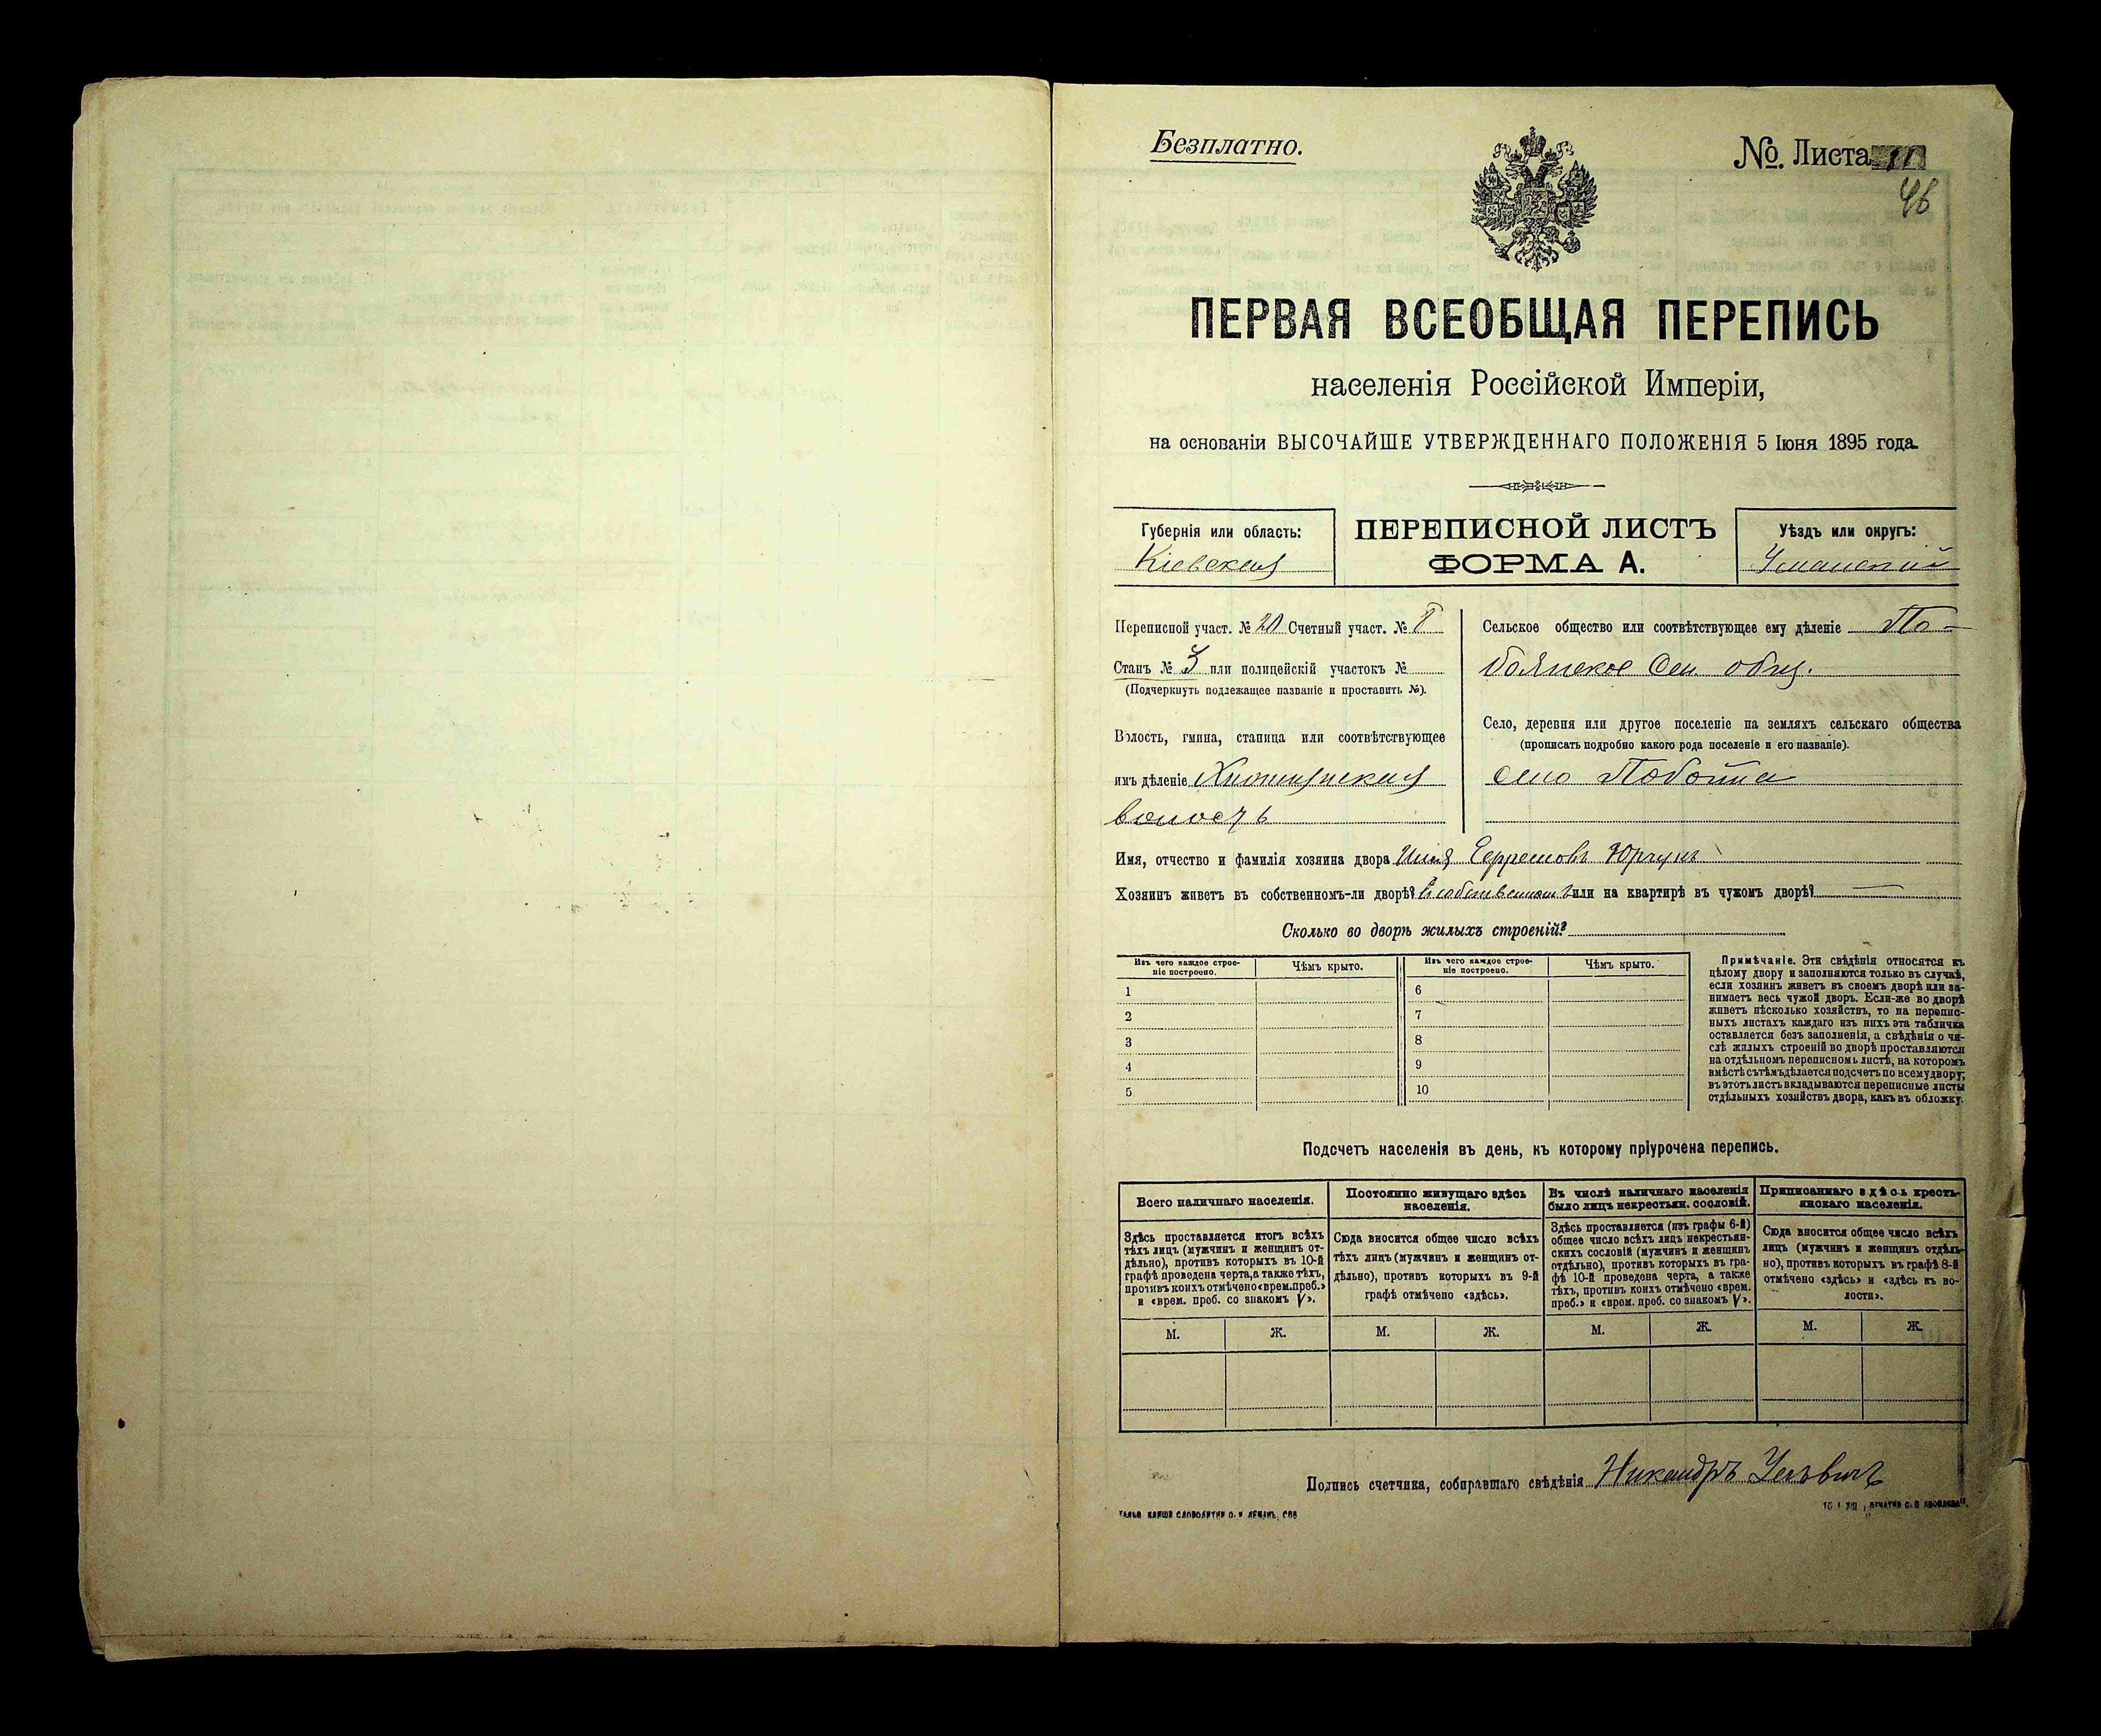 Безплатно.
№. Листа 11
46
ПЕРВАЯ ВСЕОБЩАЯ ПЕРЕПИСЬ
населенія Россійской Имперіи,
на основаніи ВЫСОЧАЙШЕ УТВЕРЖДЕННАГО ПОЛОЖЕНІЯ 5 Іюня 1895 года.
Губернія или область:
Кіевская
ПЕРЕПИСНОЙ ЛИСТЪ
ФОРМА А.
Уѣздъ или округъ:
Уманскій
Переписной участ. № 20 Счетный участ. № 8
Станъ № 3 или полицейскій участокъ №
(Подчеркнуть подлежащее названіе и проставить №).
Волость, гмина, станица или соотвѣтствующее
имъ дѣленіе
волость
Сельское общество или соотвѣтствующее ему дѣленіе По-
боянское Сел. общ.
Село, деревня или другое поселеніе на земляхъ сельскаго общества
(прописать подробно какого рода поселеніе и его названіе).
село Побойна
Имя, отчество и фамилія хозяина двора Илья Юрчукъ
Хозяинъ живетъ въ собственномъ-ли дворѣ? въ собственномъ или на квартирѣ въ чужомъ дворѣ? —
Сколько во дворѣ жилыхъ строеній?
Изъ чего каждое строе-
ніе построено.
Чѣмъ крыто.
Изъ чего каждое строе-
ніе построено.
Чѣмъ крыто.
1
2
3
4
5
6
7
8
9
10
Примѣчаніе. Эти свѣдѣнія относятся къ
цѣлому двору и заполняются только въ случаѣ,
если хозяинъ живетъ въ своемъ дворѣ или за-
нимаетъ весь чужой дворъ. Если-же во дворѣ
живетъ нѣсколько хозяйствъ, то на перепис-
ныхъ листахъ каждаго изъ нихъ эта табличка
оставляется безъ заполненія, а свѣдѣнія о чи-
слѣ жилыхъ строеній во дворѣ проставляются
на отдѣльномъ переписномъ листѣ, на которомъ
вмѣстѣ съ тѣмъ дѣлается подсчетъ по всему двору;
въ этотъ листъ вкладываются переписные листы
отдѣльныхъ хозяйствъ двора, какъ въ обложку.
Подсчетъ населенія въ день, къ которому пріурочена перепись.
Всего наличнаго населенія.
Здѣсь проставляется итогъ всѣхъ
тѣхъ лицъ (мужчинъ и женщинъ от-
дѣльно), противъ которыхъ въ 10-й
графѣ проведена черта, а также тѣхъ,
противъ коихъ отмѣчено «врем. преб.»
и «врем. преб. со знакомъ V».
Постоянно живущаго здѣсь
населенія.
Сюда вносится общее число всѣхъ
тѣхъ лицъ (мужчинъ и женщинъ от-
дѣльно), противъ которыхъ въ 9-й
графѣ отмѣчено «здѣсь».
Въ числѣ наличнаго населенія
было лицъ некрестьян. сословій.
Здѣсь проставляется (изъ графы 6-й)
общее число всѣхъ лицъ некрестьян-
скихъ сословій (мужчинъ и женщинъ
отдѣльно), противъ которыхъ въ гра-
фѣ 10-й проведена черта, а также
тѣхъ, противъ коихъ отмѣчено «врем.
преб.» и «врем. преб. со знакомъ V».
Приписаннаго здѣсь кресть-
янскаго населенія.
Сюда вносится общее число всѣхъ
лицъ (мужчинъ и женщинъ отдѣль-
но), противъ которыхъ въ графѣ 8-й
отмѣчено «здѣсь» и «здѣсь къ во-
лости».
М.
Ж.
М.
Ж.
М.
Ж.
М.
Ж.
Подпись счетчика, собиравшаго свѣдѣнія Никандръ